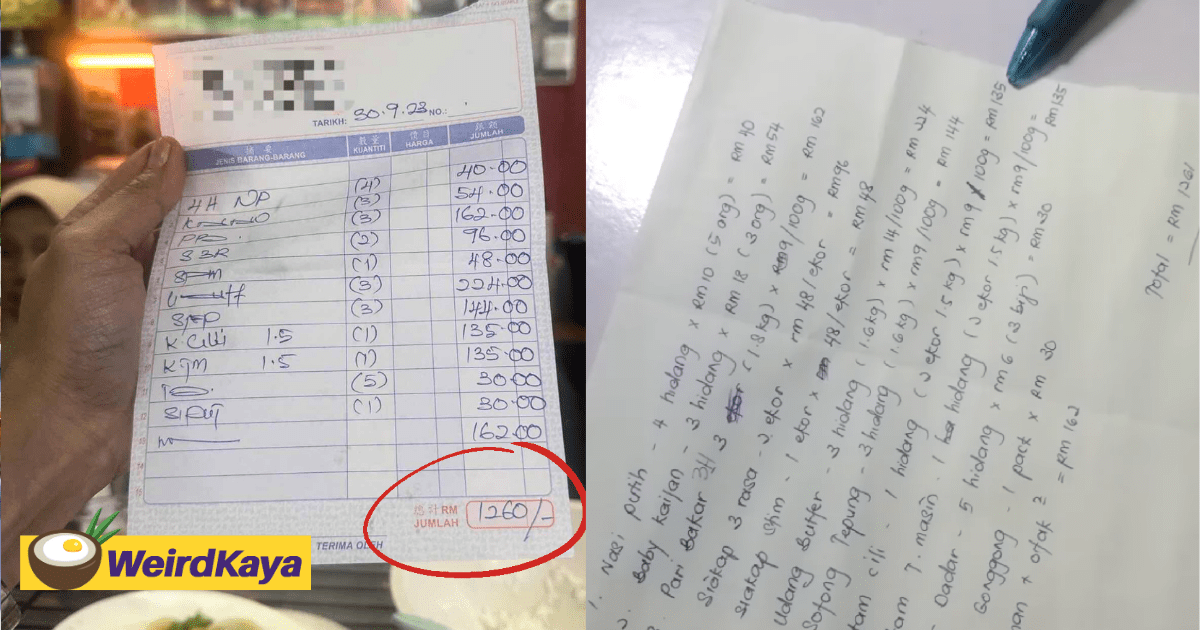 TARIKH: 30.9.23 NO.:
摘要 數量 價目 銀額
JENIS BARANG-BARANG KUANTITI HARGA JUMLAH
4H NP (4) 40.00
(3) 54.00
(3) 162.00
(2) 96.00
(1) 48.00
(3) 224.00
(3) 144.00
K. Cili 1.5 (1) 135.00
KTM 1.5 (1) 135.00
(5) 30.00
(1) 30.00
162.00
RM
JUMLAH 1260/-
TERIMA OLEH
WeirdKaya
1. Nasi putih - 4 hidang x RM10 (5 org) = RM 40
Baby kailan - 3 hidang x RM 18 (3 org) = RM 54
Pari Bakar 3H 3 (1.8kg) x RM9/100g = RM 162
Siakap 3 rasa - 2 ekor x rm 48/ekor = RM96
Siakap Stim - 1 ekor x 48/ekor = RM 48
Udang Butter - 3 hidang (1.6kg) x rm14/100g = RM 224
Sotong Tepung - 3 hidang (1.6kg) x rm9/100g = RM 144
cili - 1 hidang ekor 1.5kg) x rm9/100g = RM135
T. masin - 1 hidang ekor 1.5kg) x rm9/100g = RM135
Dadar - 5 hidang x rm6 = RM30
Gonggong - 1 pact x RM 30
+ otak 2 = RM 162
Total = RM 1261